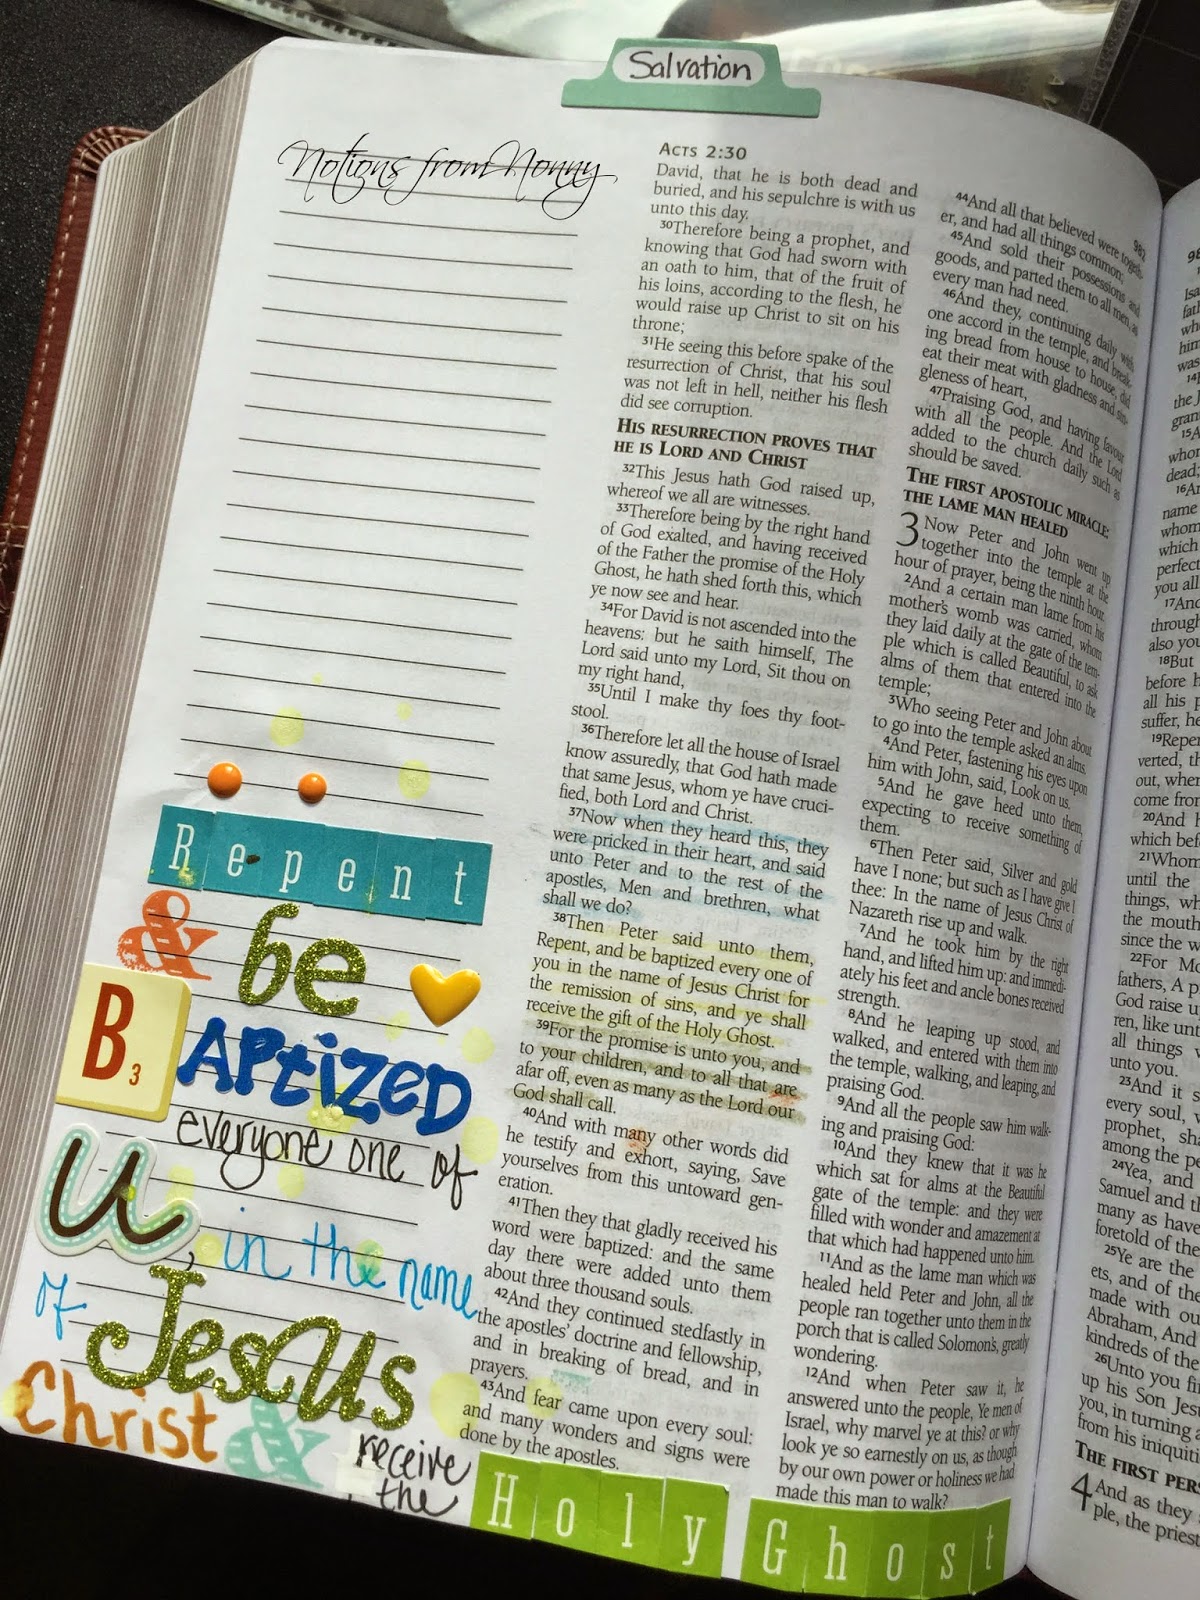 Salvation
Notions from Nonny
Repent
& be
B3 APtizED
everyone one of
u, in the name
of Jesus
Christ & receive
the
Holy Ghost
ACTS 2:30
David, that he is both dead and
buried, and his sepulchre is with us
unto this day.
30Therefore being a prophet, and
knowing that God had sworn with
an oath to him, that of the fruit of
his loins, according to the flesh, he
would raise up Christ to sit on his
throne;
31He seeing this before spake of the
resurrection of Christ, that his soul
was not left in hell, neither his flesh
did see corruption.
HIS RESURRECTION PROVES THAT
HE IS LORD AND CHRIST
32This Jesus hath God raised up,
whereof we all are witnesses.
33Therefore being by the right hand
of God exalted, and having received
of the Father the promise of the Holy
Ghost, he hath shed forth this, which
ye now see and hear.
34For David is not ascended into the
heavens: but he saith himself, The
Lord said unto my Lord, Sit thou on
my right hand,
35Until I make thy foes thy foot-
stool.
36Therefore let all the house of Israel
know assuredly, that God hath made
that same Jesus, whom ye have cruci-
fied, both Lord and Christ.
37Now when they heard this, they
were pricked in their heart, and said
unto Peter and to the rest of the
apostles, Men and brethren, what
shall we do?
38Then Peter said unto them,
Repent, and be baptized every one of
you in the name of Jesus Christ for
the remission of sins, and ye shall
receive the gift of the Holy Ghost.
39For the promise is unto you, and
to your children, and to all that are
afar off, even as many as the Lord our
God shall call.
40And with many other words did
he testify and exhort, saying, Save
yourselves from this untoward gen-
eration.
41Then they that gladly received his
word were baptized: and the same
day there were added unto them
about three thousand souls.
42And they continued stedfastly in
the apostles' doctrine and fellowship,
and in breaking of bread, and in
prayers.
43And fear came upon every soul:
and many wonders and signs were
done by the apostles.
982
44And all that believed were togeth-
er, and had all things common;
45And sold their possessions and
goods, and parted them to all men, as
every man had need.
46And they, continuing daily with
one accord in the temple, and break-
ing bread from house to house, did
eat their meat with gladness and sin-
gleness of heart,
47Praising God, and having favour
with all the people. And the Lord
added to the church daily such as
should be saved.
THE FIRST APOSTOLIC MIRACLE:
THE LAME MAN HEALED
3 Now Peter and John went up
together into the temple at the
hour of prayer, being the ninth hour.
2And a certain man lame from his
mother's womb was carried, whom
they laid daily at the gate of the tem-
ple which is called Beautiful, to ask
alms of them that entered into the
temple;
3Who seeing Peter and John about
to go into the temple asked an alms.
4And Peter, fastening his eyes upon
him with John, said, Look on us.
5And he gave heed unto them,
expecting to receive something of
them.
6Then Peter said, Silver and gold
have I none; but such as I have give I
thee: In the name of Jesus Christ of
Nazareth rise up and walk.
7And he took him by the right
hand, and lifted him up: and immedi-
ately his feet and ancle bones received
strength.
8And he leaping up stood, and
walked, and entered with them into
the temple, walking, and leaping, and
praising God.
9And all the people saw him walk-
ing and praising God:
10And they knew that it was he
which sat for alms at the Beautiful
gate of the temple: and they were
filled with wonder and amazement at
that which had happened unto him.
11And as the lame man which was
healed held Peter and John, all the
people ran together unto them in the
porch that is called Solomon's, greatly
wondering.
12And when Peter saw it, he
answered unto the people, Ye men of
Israel, why marvel ye at this? or why
look ye so earnestly on us, as though
by our own power or holiness we had
made this man to walk?
before h
all his p
suffer, he
19Repen
verted, th
out, when
come from
20And h
which before
21Whom
until the
things, wh
the mouth
since the w
22For Mo
fathers, A p
God raise u
ren, like unt
all things
unto you.
23And it s
every soul,
prophet, sh
among the pe
24Yea, and
Samuel and th
many as have
foretold of the
25Ye are the
ets, and of the
made with ou
Abraham, And
kindreds of the
26Unto you fi
up his Son Jes
you, in turning a
from his iniquiti
THE FIRST PERS
4 And as they s
ple, the priest